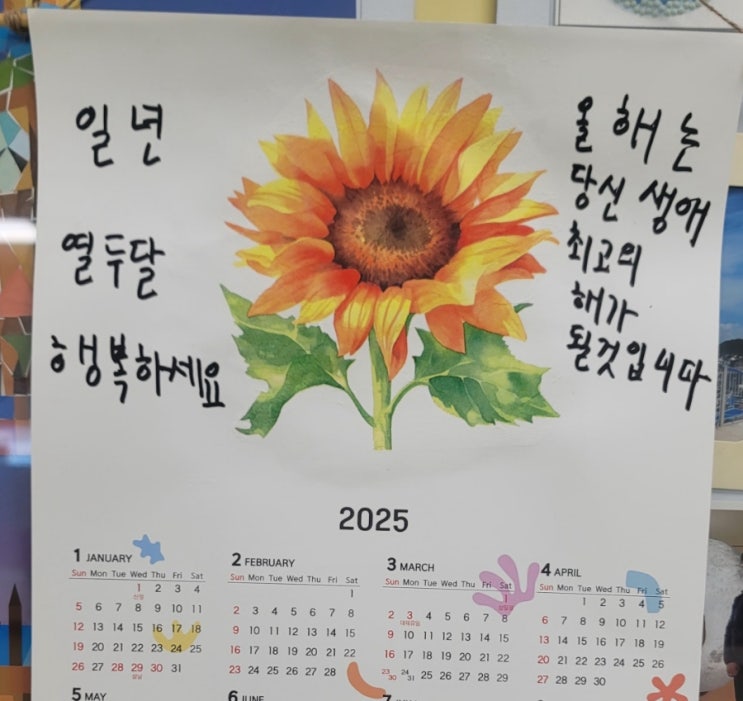 일 년
열두달
행복하세요
올 해 는
당신 생애
최고의
해가
될것입니다
2025
1 JANUARY
Sun Mon Tue Wed Thu Fri Sat
1 2 3 4
신정
5 6 7 8 9 10 11
12 13 14 15 16 17 18
19 20 21 22 23 24 25
26 27 28 29 30 31
설날
2 FEBRUARY
Sun Mon Tue Wed Thu Fri Sat
1
2 3 4 5 6 7 8
9 10 11 12 13 14 15
16 17 18 19 20 21 22
23 24 25 26 27 28
3 MARCH
Sun Mon Tue Wed Thu Fri Sat
1
삼일절
2 3 4 5 6 7 8
대체휴일
9 10 11 12 13 14 15
16 17 18 19 20 21 22
23 24 25 26 27 28 29
30 31
4 APRIL
Sun Mon Tue Wed Thu Fri Sat
1 2 3 4 5
6 7 8 9 10 11 12
13 14 15 16 17 18 19
20 21 22 23 24 25 26
27 28 29 30
5 MAY
6 JUNE
7